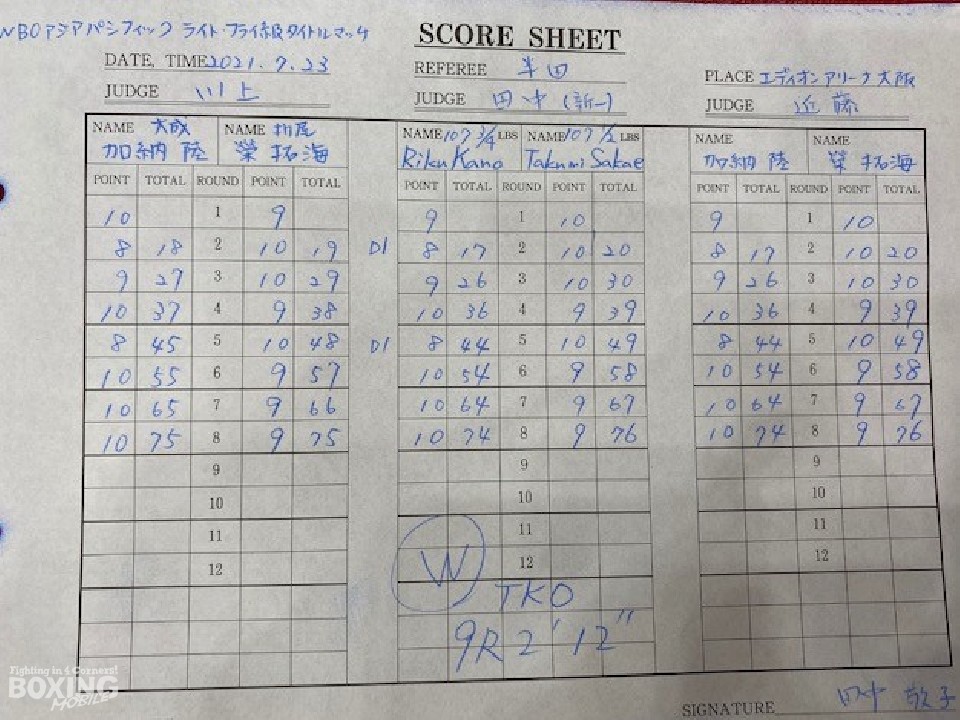 WBOアジアパシフィック ライト・フライ級タイトルマッチ
SCORE SHEET
DATE, TIME 2021.7.23
REFEREE 半田
PLACE エディオンアリーナ大阪
JUDGE 川上
JUDGE 田中(新一)
JUDGE 近藤
NAME 大成 NAME 折尾 NAME 107 3/4 LBS NAME 107 1/2 LBS NAME NAME
加納 陸 榮 拓海 Riku Kano Takumi Sakae 加納 陸 榮 拓海
POINT TOTAL ROUND POINT TOTAL POINT TOTAL ROUND POINT TOTAL POINT TOTAL ROUND POINT TOTAL
10 1 9 9 1 10 9 1 10
8 18 2 10 19 D1 8 17 2 10 20 8 17 2 10 20
9 27 3 10 29 9 26 3 10 30 9 26 3 10 30
10 37 4 9 38 10 36 4 9 39 10 36 4 9 39
8 45 5 10 48 D1 8 44 5 10 49 8 44 5 10 49
10 55 6 9 57 10 54 6 9 58 10 54 6 9 58
10 65 7 9 66 10 64 7 9 67 10 64 7 9 67
10 75 8 9 75 10 74 8 9 76 10 74 8 9 76
9 9 9
10 10 10
11 11 11
12 12 12
W
TKO
9R 2'12"
SIGNATURE 田中 敬子
Fighting in 4 Corners!
BOXING
MOBILE